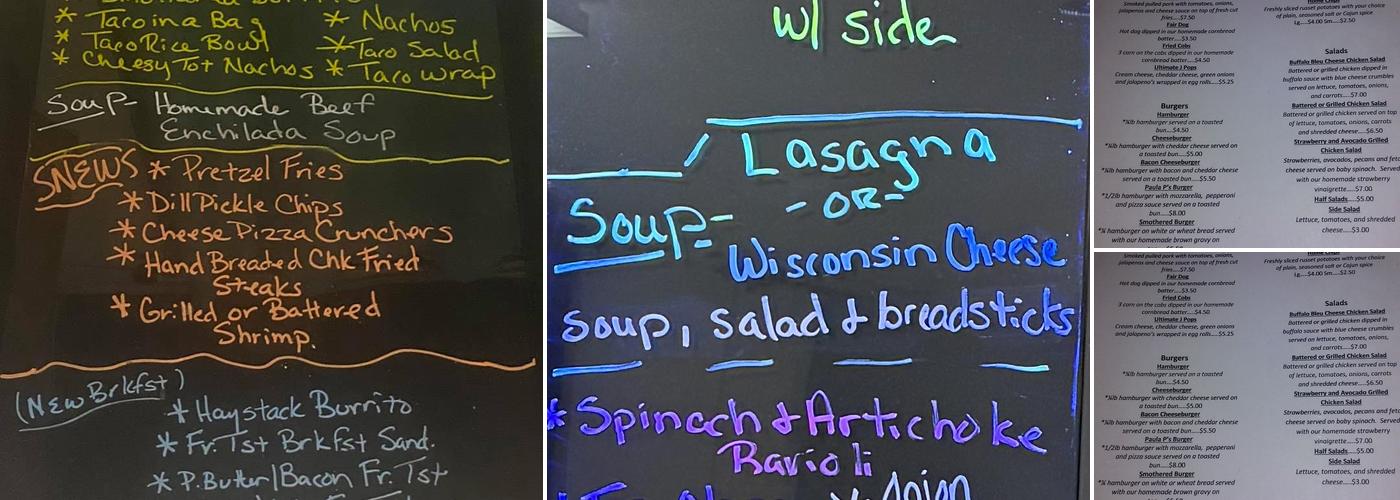 * Taco in a Bag
* Nachos
* Taco Rice Bowl
* Taco Salad
* Cheesy Tot Nachos
* Taco Wrap
Soup- Homemade Beef
Enchilada Soup
SNEWS * Pretzel Fries
* Dill Pickle Chips
* Cheese Pizza Crunchers
* Hand Breaded Chk Fried
Streaks
* Grilled or Battered
Shrimp.
(New Brkfst)
* Haystack Burrito
* Fr. Tst Brkfst Sand.
* P.Butter/Bacon Fr. Tst
w/ side
Lasagna
-OR-
Soup-
Wisconsin Cheese
soup, salad & breadsticks
* Spinach & Artichoke
Ravioli
Smoked pulled pork with tomatoes, onions,
jalapenos and cheese sauce on top of fresh cut
fries....$7.50
Fair Dog
Hot dog dipped in our homemade cornbread
batter....$3.50
Fried Cobs
3 corn on the cobs dipped in our homemade
cornbread batter....$4.50
Ultimate J Pops
Cream cheese, cheddar cheese, green onions
and jalapeno's wrapped in egg rolls....$5.25
Burgers
Hamburger
*¼lb hamburger served on a toasted
bun....$4.50
Cheeseburger
*¼lb hamburger with cheddar cheese served on
a toasted bun....$5.00
Bacon Cheeseburger
*¼lb hamburger with bacon and cheddar cheese
served on a toasted bun....$5.50
Paula P's Burger
*1/2lb hamburger with mozzarella, pepperoni
and pizza sauce served on a toasted
bun....$8.00
Smothered Burger
*¼ hamburger on white or wheat bread served
with our homemade brown gravy on
Freshly sliced russet potatoes with your choice
of plain, seasoned salt or Cajun spice
Lg....$4.00 Sm....$2.50
Salads
Buffalo Bleu Cheese Chicken Salad
Battered or grilled chicken dipped in
buffalo sauce with blue cheese crumbles
served on lettuce, tomatoes, onions,
and carrots....$7.00
Battered or Grilled Chicken Salad
Battered or grilled chicken served on top
of lettuce, tomatoes, onions, carrots
and shredded cheese....$6.50
Strawberry and Avocado Grilled
Chicken Salad
Strawberries, avocados, pecans and feta
cheese served on baby spinach. Served
with our homemade strawberry
vinaigrette....$7.00
Half Salads....$5.00
Side Salad
Lettuce, tomatoes, and shredded
cheese....$3.00
Smoked pulled pork with tomatoes, onions,
jalapenos and cheese sauce on top of fresh cut
fries....$7.50
Fair Dog
Hot dog dipped in our homemade cornbread
batter....$3.50
Fried Cobs
3 corn on the cobs dipped in our homemade
cornbread batter....$4.50
Ultimate J Pops
Cream cheese, cheddar cheese, green onions
and jalapeno's wrapped in egg rolls....$5.25
Burgers
Hamburger
*¼lb hamburger served on a toasted
bun....$4.50
Cheeseburger
*¼lb hamburger with cheddar cheese served on
a toasted bun....$5.00
Bacon Cheeseburger
*¼lb hamburger with bacon and cheddar cheese
served on a toasted bun....$5.50
Paula P's Burger
*1/2lb hamburger with mozzarella, pepperoni
and pizza sauce served on a toasted
bun....$8.00
Smothered Burger
*¼ hamburger on white or wheat bread served
with our homemade brown gravy on
Freshly sliced russet potatoes with your choice
of plain, seasoned salt or Cajun spice
Lg....$4.00 Sm....$2.50
Salads
Buffalo Bleu Cheese Chicken Salad
Battered or grilled chicken dipped in
buffalo sauce with blue cheese crumbles
served on lettuce, tomatoes, onions,
and carrots....$7.00
Battered or Grilled Chicken Salad
Battered or grilled chicken served on top
of lettuce, tomatoes, onions, carrots
and shredded cheese....$6.50
Strawberry and Avocado Grilled
Chicken Salad
Strawberries, avocados, pecans and feta
cheese served on baby spinach. Served
with our homemade strawberry
vinaigrette....$7.00
Half Salads....$5.00
Side Salad
Lettuce, tomatoes, and shredded
cheese....$3.00